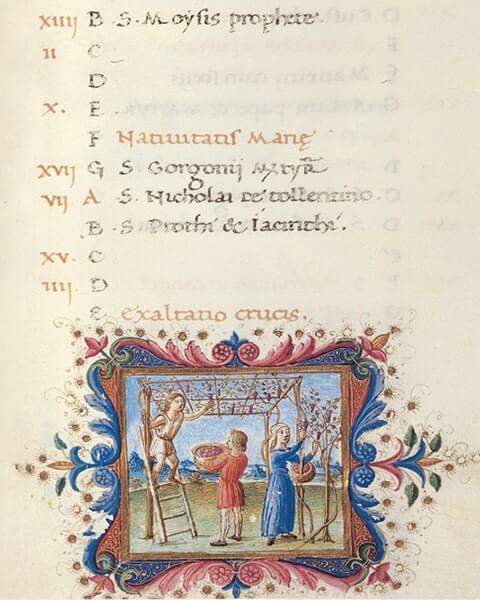 xiiij B S. Moysis prophete.
ii C
D
x. E
F Nativitatis Marię
xvij G S. Gorgonij
vij A S. Nicholai de tollentino.
B S. Prothi & Iacinthi.
xv. C
iiij. D
E exaltatio crucis.